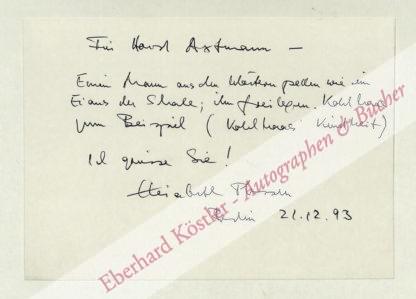 Für Horst Axtmann —
Einen Mann aus den Wörtern pellen wie ein
Ei aus der Schale; ihn freilegen. Kohlhaas
zum Beispiel (Kohlhaas' Kindheit)
Ich grüsse Sie!
Elisabeth Plessen
Berlin 21.12.93
Eberhard Köstler - Autographen & Bücher